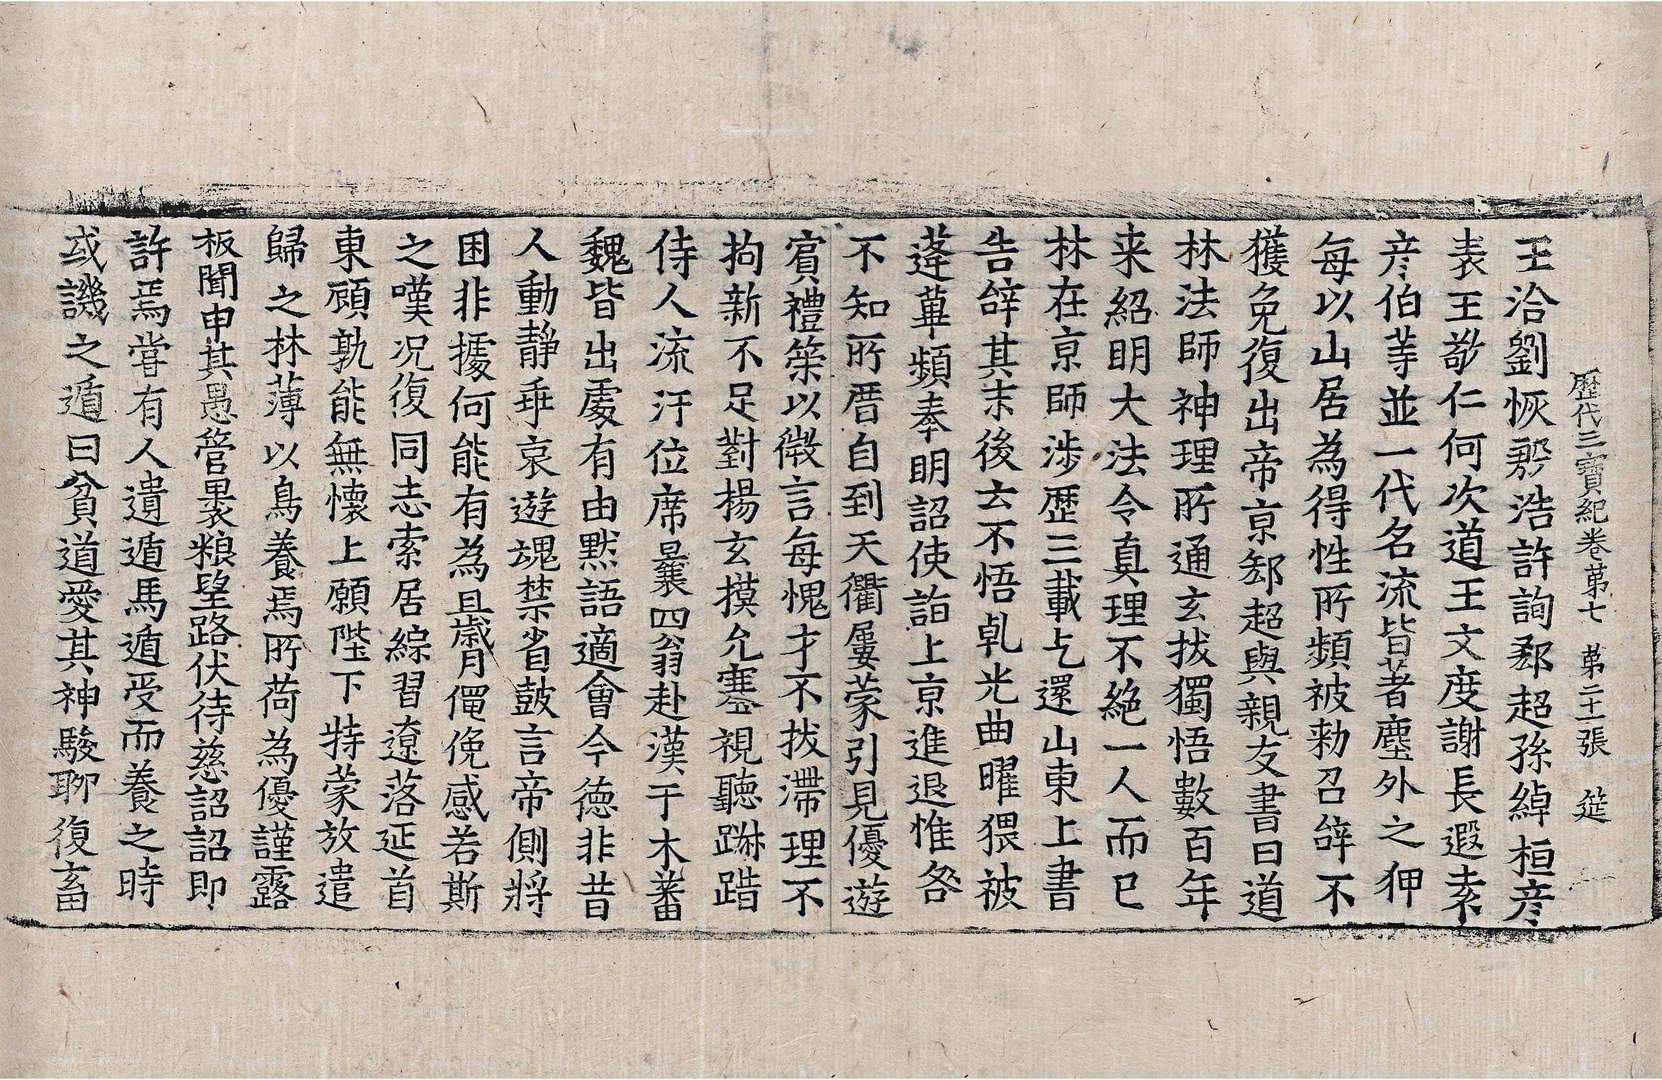 歷代三寶紀卷苐七　苐二十一張　筵
王洽劉恢殷浩許詢郄超孫綽桓彦
表王敬仁何次道王文度謝長遐袁
彦伯等並一代名流皆著塵外之狎
每以山居為得性所頻被勑召辝不
獲免復出帝京郄超與親友書曰道
林法師神理所通玄拔獨悟數百年
来紹明大法令真理不絶一人而已
林在京師涉歷三載乞還山東上書
告辝其末後云不悟乹光曲曜猥被
蓬蓽頻奉明詔使詣上京進退惟咎
不知所厝自到天衢屢蒙引見優遊
賔禮策以微言每愧才不拔滯理不
拘新不足對揚玄摸允塞視聽踧踖
侍人流汗位席曩四翁赴漢于木蕃
魏皆出處有由默語適會今德非昔
人動靜乖哀遊魂禁省鼓言帝側將
困非據何能有為且歲月僶俛感若斯
之嘆况復同志索居綜習遼落延首
東顧孰能無懷上願陛下特蒙放遣
歸之林薄以鳥養焉所荷為優謹露
板聞申其愚管褁粮望路伏待慈詔詔即
許焉甞有人遺遁馬遁受而養之時
或譏之遁曰貧道愛其神駿聊復畜